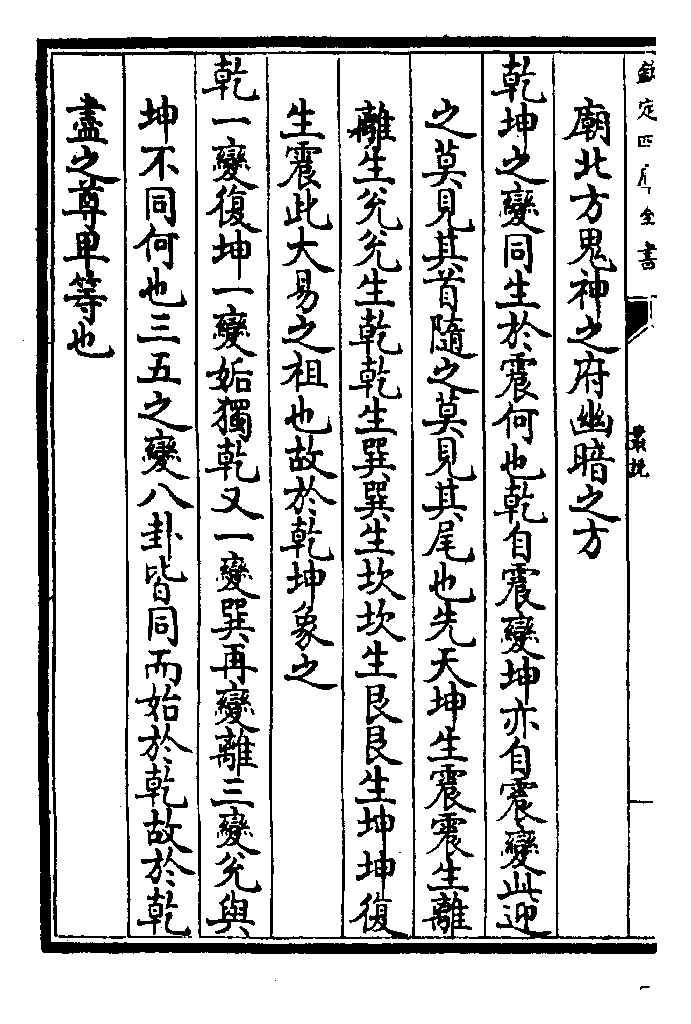 欽定四庫全書
叢説
廟北方鬼神之府幽暗之方
乾坤之變同生於震何也乾自震變坤亦自震變此迎
之莫見其首隨之莫見其尾也先天坤生震震生離
離生兊兊生乾乾生巽巽生坎坎生艮艮生坤坤復
生震此大易之祖也故於乾坤象之
乾一變復坤一變姤獨乾又一變巽再變離三變兊與
坤不同何也三五之變八卦皆同而始於乾故於乾
盡之尊卑等也